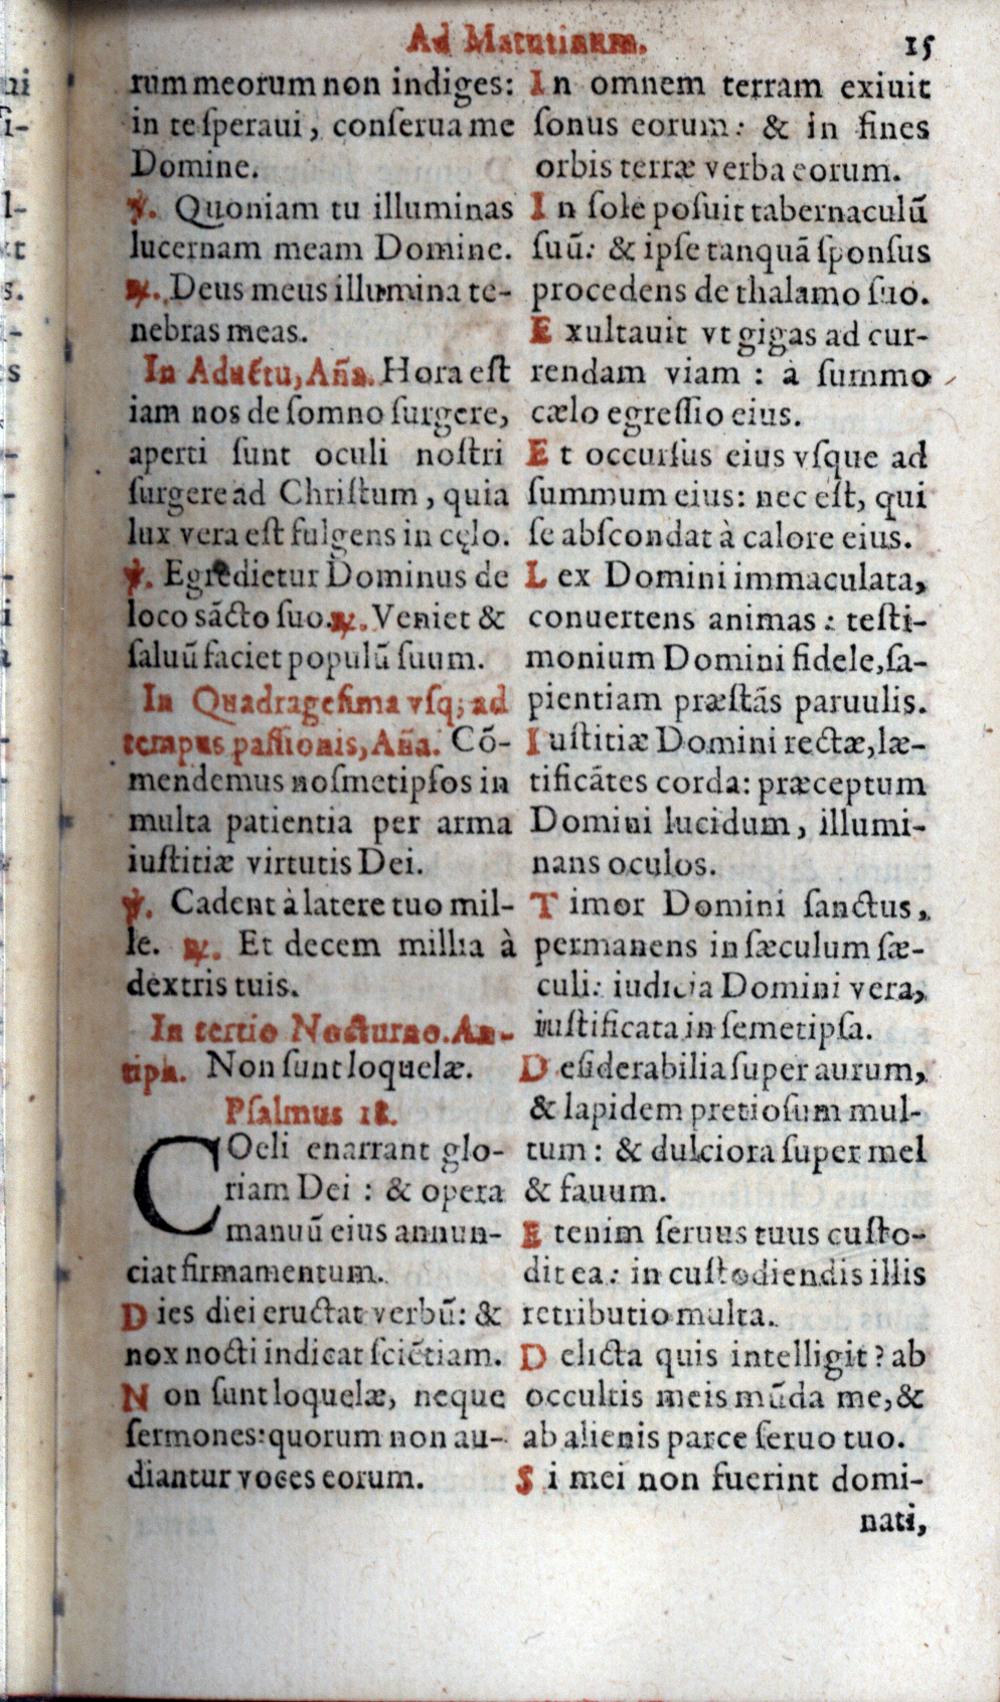 Ad Matutinum. 15
rum meorum non indiges:
in te ſperaui, conſerua me
Domine.
℣. Quoniam tu illuminas
lucernam meam Domine.
℟. Deus meus illumina te-
nebras meas.
In Aduẽtu, Añа. Hora eſt
iam nos de ſomno ſurgere,
aperti ſunt oculi noſtri
ſurgere ad Chriſtum, quia
lux vera eſt fulgens in cęlo.
℣. Egredietur Dominus de
loco sãcto ſuo. ℟. Veniet &
ſaluũ faciet populũ ſuum.
In Quadrageſima vſq; ad
tempus paſſionis, Aña. Cõ-
mendemus noſmetipſos in
multa patientia per arma
iuſtitiæ virtutis Dei.
℣. Cadent à latere tuo mil-
le. ℟. Et decem millia à
dextris tuis.
In tertio Nocturno. An-
tiph. Non ſunt loquelæ.
Pſalmus 18.
COeli enarrant glo-
riam Dei : & opera
manuũ eius annun-
ciat firmamentum.
Dies diei eructat verbũ: &
nox nocti indicat ſciẽtiam.
Non ſunt loquelæ, neque
ſermones: quorum non au-
diantur voces eorum.
In omnem terram exiuit
ſonus eorum: & in fines
orbis terræ verba eorum.
In ſole poſuit tabernaculũ
ſuũ: & ipſe tanquã ſponſus
procedens de thalamo ſuo.
Exultauit vt gigas ad cur-
rendam viam : à ſummo
cælo egreſſio eius.
Et occurſus eius vſque ad
ſummum eius: nec eſt, qui
ſe abſcondat à calore eius.
Lex Domini immaculata,
conuertens animas : teſti-
monium Domini fidele, ſa-
pientiam præſtãs paruulis.
Iuſtitiæ Domini rectæ, læ-
tificãtes corda: præceptum
Domini lucidum, illumi-
nans oculos.
Timor Domini ſanctus,
permanens in ſæculum ſæ-
culi: iudicia Domini vera,
iuſtificata in ſemetipſa.
Deſiderabilia ſuper aurum,
& lapidem pretioſum mul-
tum : & dulciora ſuper mel
& fauum.
Etenim ſeruus tuus cuſto-
dit ea: in cuſtodiendis illis
retributio multa.
Delicta quis intelligit? ab
occultis meis mũda me, &
ab alienis parce ſeruo tuo.
Si mei non fuerint domi-
nati,